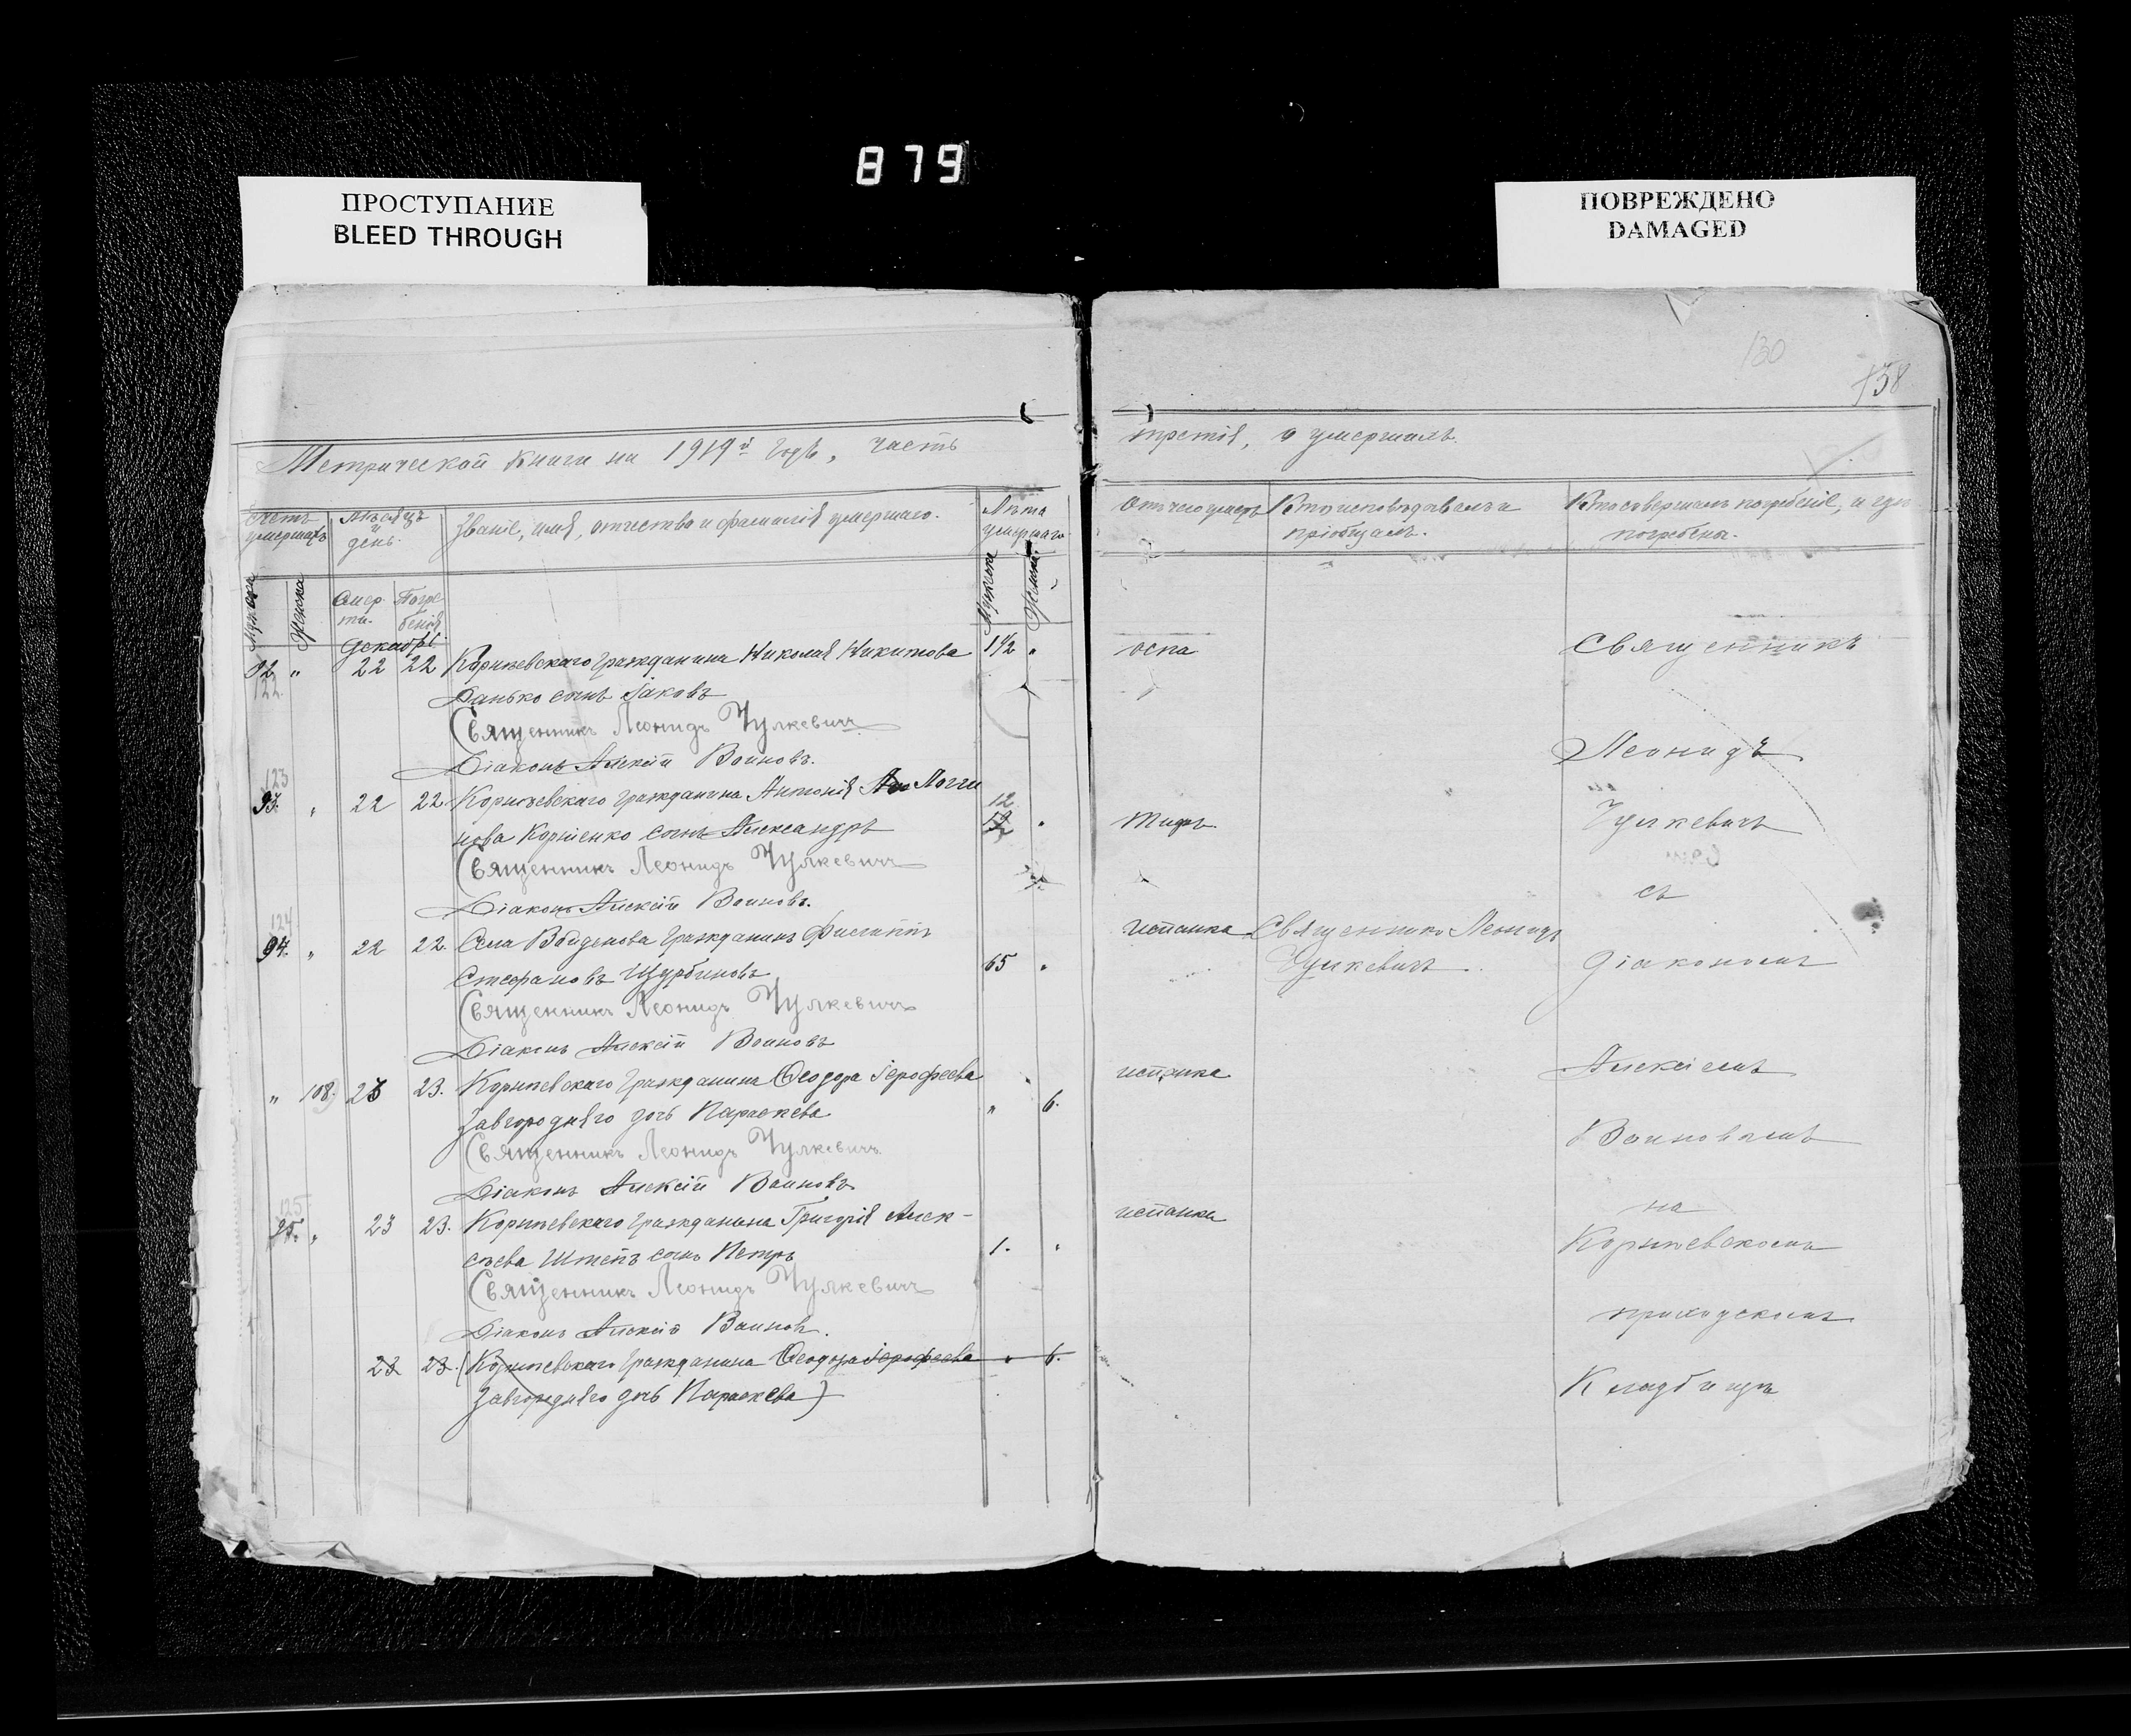 879
ПРОСТУПАНИЕ
BLEED THROUGH
ПОВРЕЖДЕНО
DAMAGED
130
138
Метрической книги на 1919й годъ, часть
третія, о умершихъ.
Счетъ умершихъ
Мѣсяцъ и день.
Званіе, имя, отчество и фамилія умершаго.
Лѣта умершаго
Отъ чего умеръ
Кто исповѣдывалъ и пріобщалъ.
Кто совершалъ погребеніе, и гдѣ погребены.
Мужска
Женска
Смер-
ти.
Погре
бенія
Мужска
Женска
Декабрь
92 " 22 22 Корнѣевскаго гражданина Николая Никитова 1 1/2 " оспа Священникъ
122.
Данько сынъ Іаковъ
Священникъ Леонидъ Чулкевичъ
Діаконъ Алексій Воиновъ.
Леонидъ
123
93. " 22 22 Корнѣевскаго гражданина Антонія Логги
12
нова Корніенко сынъ Александръ " тифъ. Чулкевичъ
Священникъ Леонидъ Чулкевичъ
съ
Діаконъ Алексій Воиновъ.
124
94. " 22 22. Села Войценова гражданинъ Филиппъ испанка Священникъ Леонидъ
Стефановъ Щурбиновъ 65 " Чулкевичъ. Діакономъ
Священникъ Леонидъ Чулкевичъ
Діаконъ Алексій Воиновъ
" 108. 23 23. Корнѣевскаго гражданина Ѳеодора Іерофеева испанка Алексіемъ
Завгородняго дочь Параскева " 6.
Священникъ Леонидъ Чулкевичъ
Воиновымъ
Діаконъ Алексій Воиновъ
125
95. " 23 23. Корнѣевскаго гражданина Григорія Алек- испанка на
сѣева Штепъ сынъ Петръ 1. " Корнѣевскомъ
Священникъ Леонидъ Чулкевичъ
Діаконъ Алексій Воиновъ. приходскомъ
23 23. (Корнѣевскаго гражданина Ѳеодора Іерофеева " 6.
Завгородняго дочь Параскева) Кладбищѣ